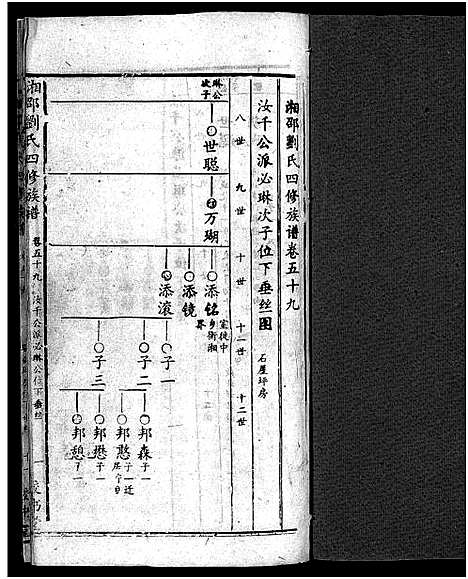 湘邵劉氏四修族谱卷五十九
汝千公派必琳次子位下垂丝图
石屋坪房
八世
九世
十世
十一世
十二世
琳公次子
世聪
万瑚
添铭
添镜
添滚
子一
子二
子三
邦森 子一
邦憨 子一迁
邦懋 子一
邦憩 子一
湘邵劉氏四修族谱
卷五十九
汝千公派必琳公位下垂丝